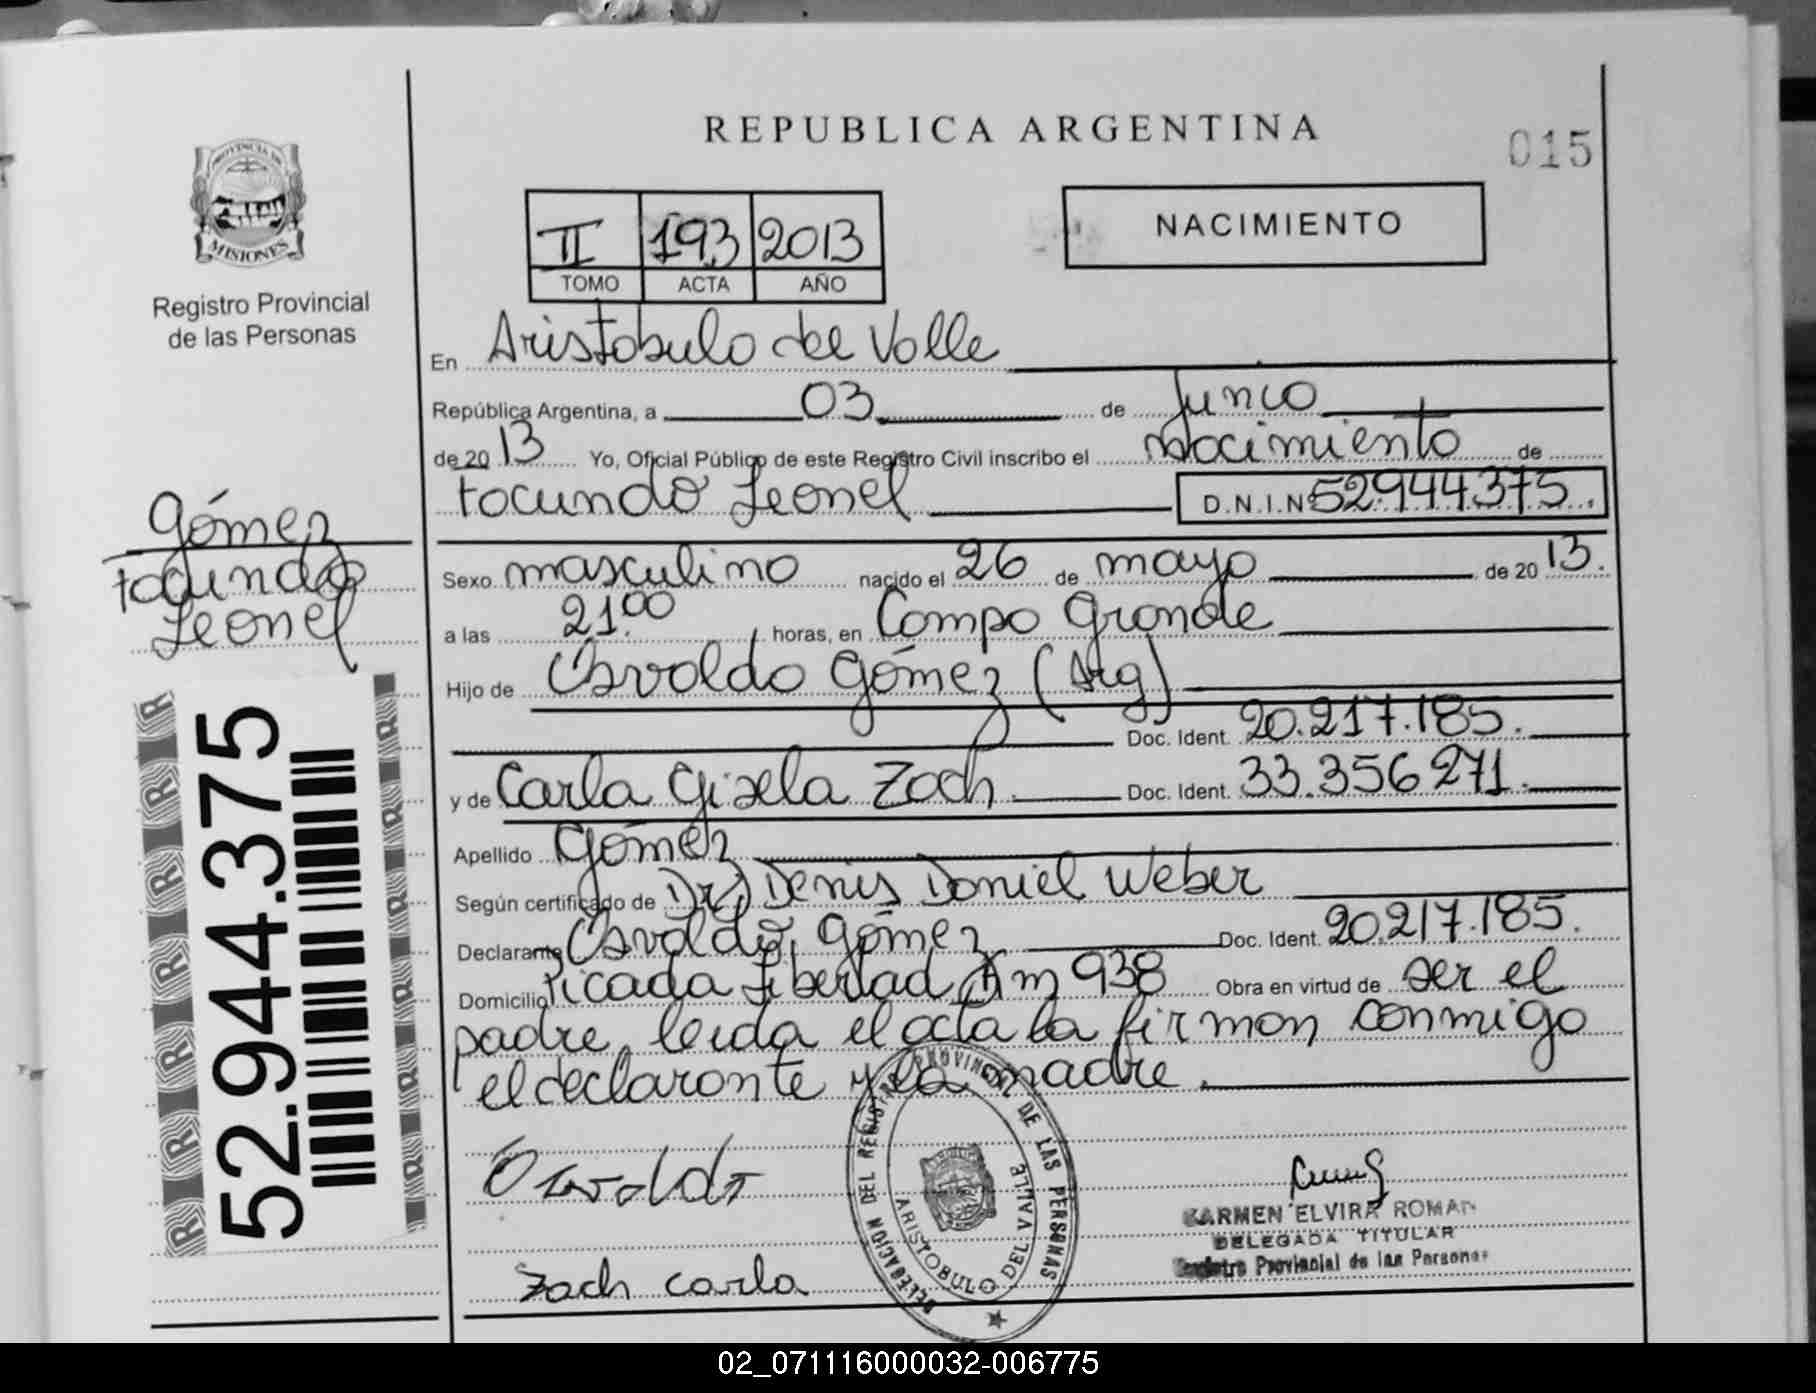 REPUBLICA ARGENTINA
015
PROVINCIA DE
MISIONES
Registro Provincial
de las Personas
II 193 2013
TOMO ACTA AÑO
NACIMIENTO
En Aristobulo del Valle
República Argentina, a 03 de Junio
de 20 13 Yo, Oficial Público de este Registro Civil inscribo el Nacimiento de
Facundo Leonel D.N.I.Nº 52.944.375.
Gómez
Facundo
Leonel
Sexo masculino nacido el 26 de mayo de 20 13.
a las 21.00 horas, en Campo Grande
Hijo de Osvaldo Gómez (Arg)
Doc. Ident. 20.217.185.
y de Carla Gisela Zach Doc. Ident. 33.356271.
Apellido Gómez
Según certificado de Dr) Denis Daniel Weber
Declarante Osvaldo Gómez Doc. Ident. 20.217.185.
Domicilio Picada Libertad Km 938 Obra en virtud de ser el
padre, leida el acta la firman conmigo
el declarante y la madre.
52.944.375
Osvaldo
Zach Carla
DELEGACION DEL REGISTRO PROVINCIAL DE LAS PERSONAS
ARISTOBULO DEL VALLE
KARMEN ELVIRA ROMAN
DELEGADA TITULAR
Registro Provincial de las Personas
02_071116000032-006775